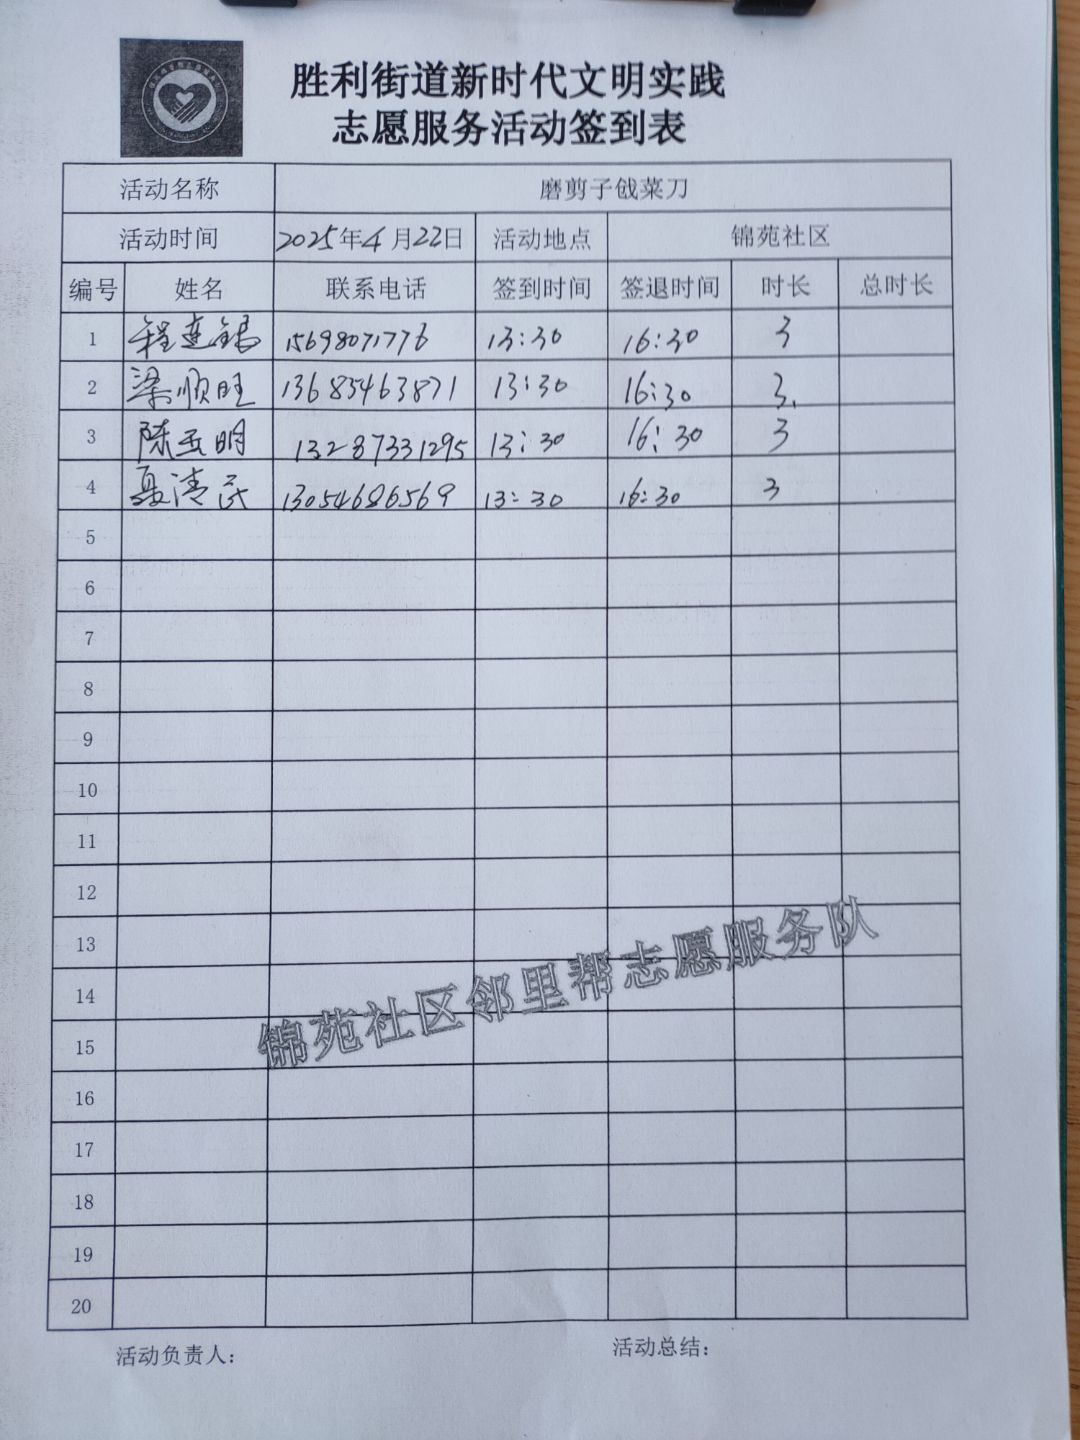 胜利街道新时代文明实践
志愿服务活动签到表
活动名称 磨剪子戗菜刀
活动时间 2025年4月22日 活动地点 锦苑社区
编号 姓名 联系电话 签到时间 签退时间 时长 总时长
1 程连锟 15698071776 13:30 16:30 3
2 梁顺旺 13685463871 13:30 16:30 3.
3 陈玉明 13287331295 13:30 16:30 3
4 聂清民 13054686569 13:30 16:30 3
5
6
7
8
9
10
11
12
13
14
15
16
17
18
19
20
锦苑社区邻里帮志愿服务队
活动负责人： 活动总结：